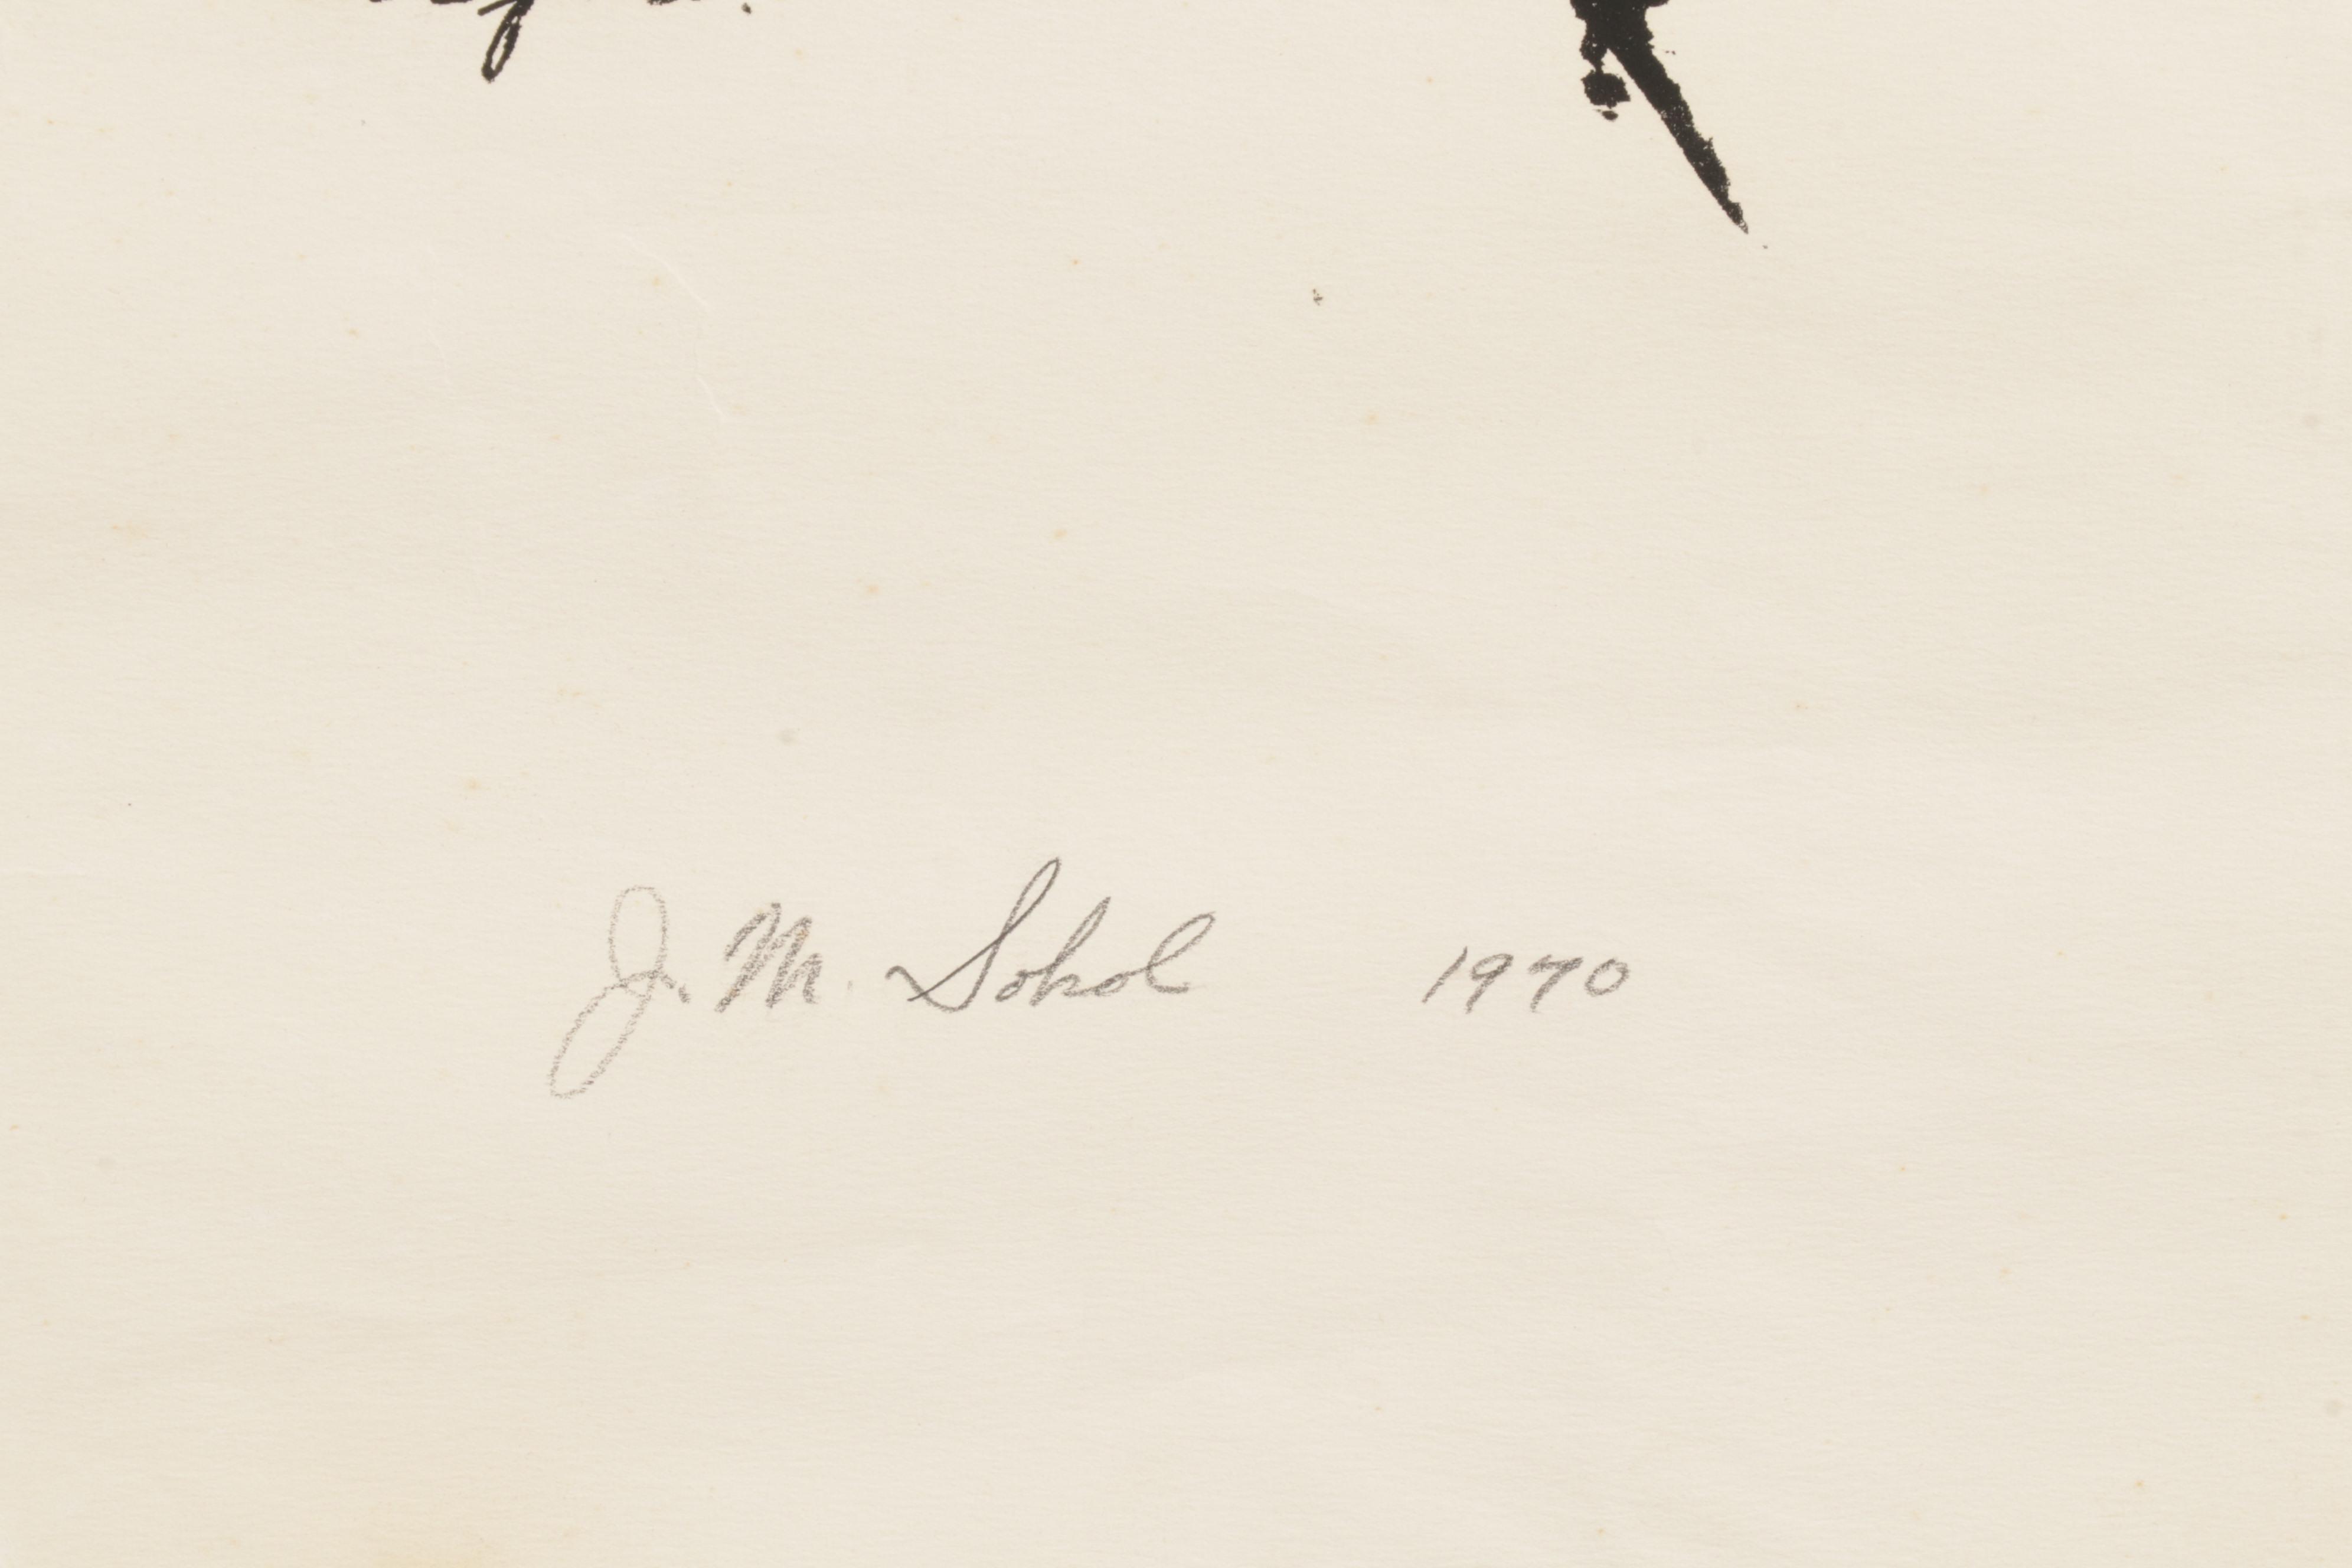 J. M. Sokol 1970